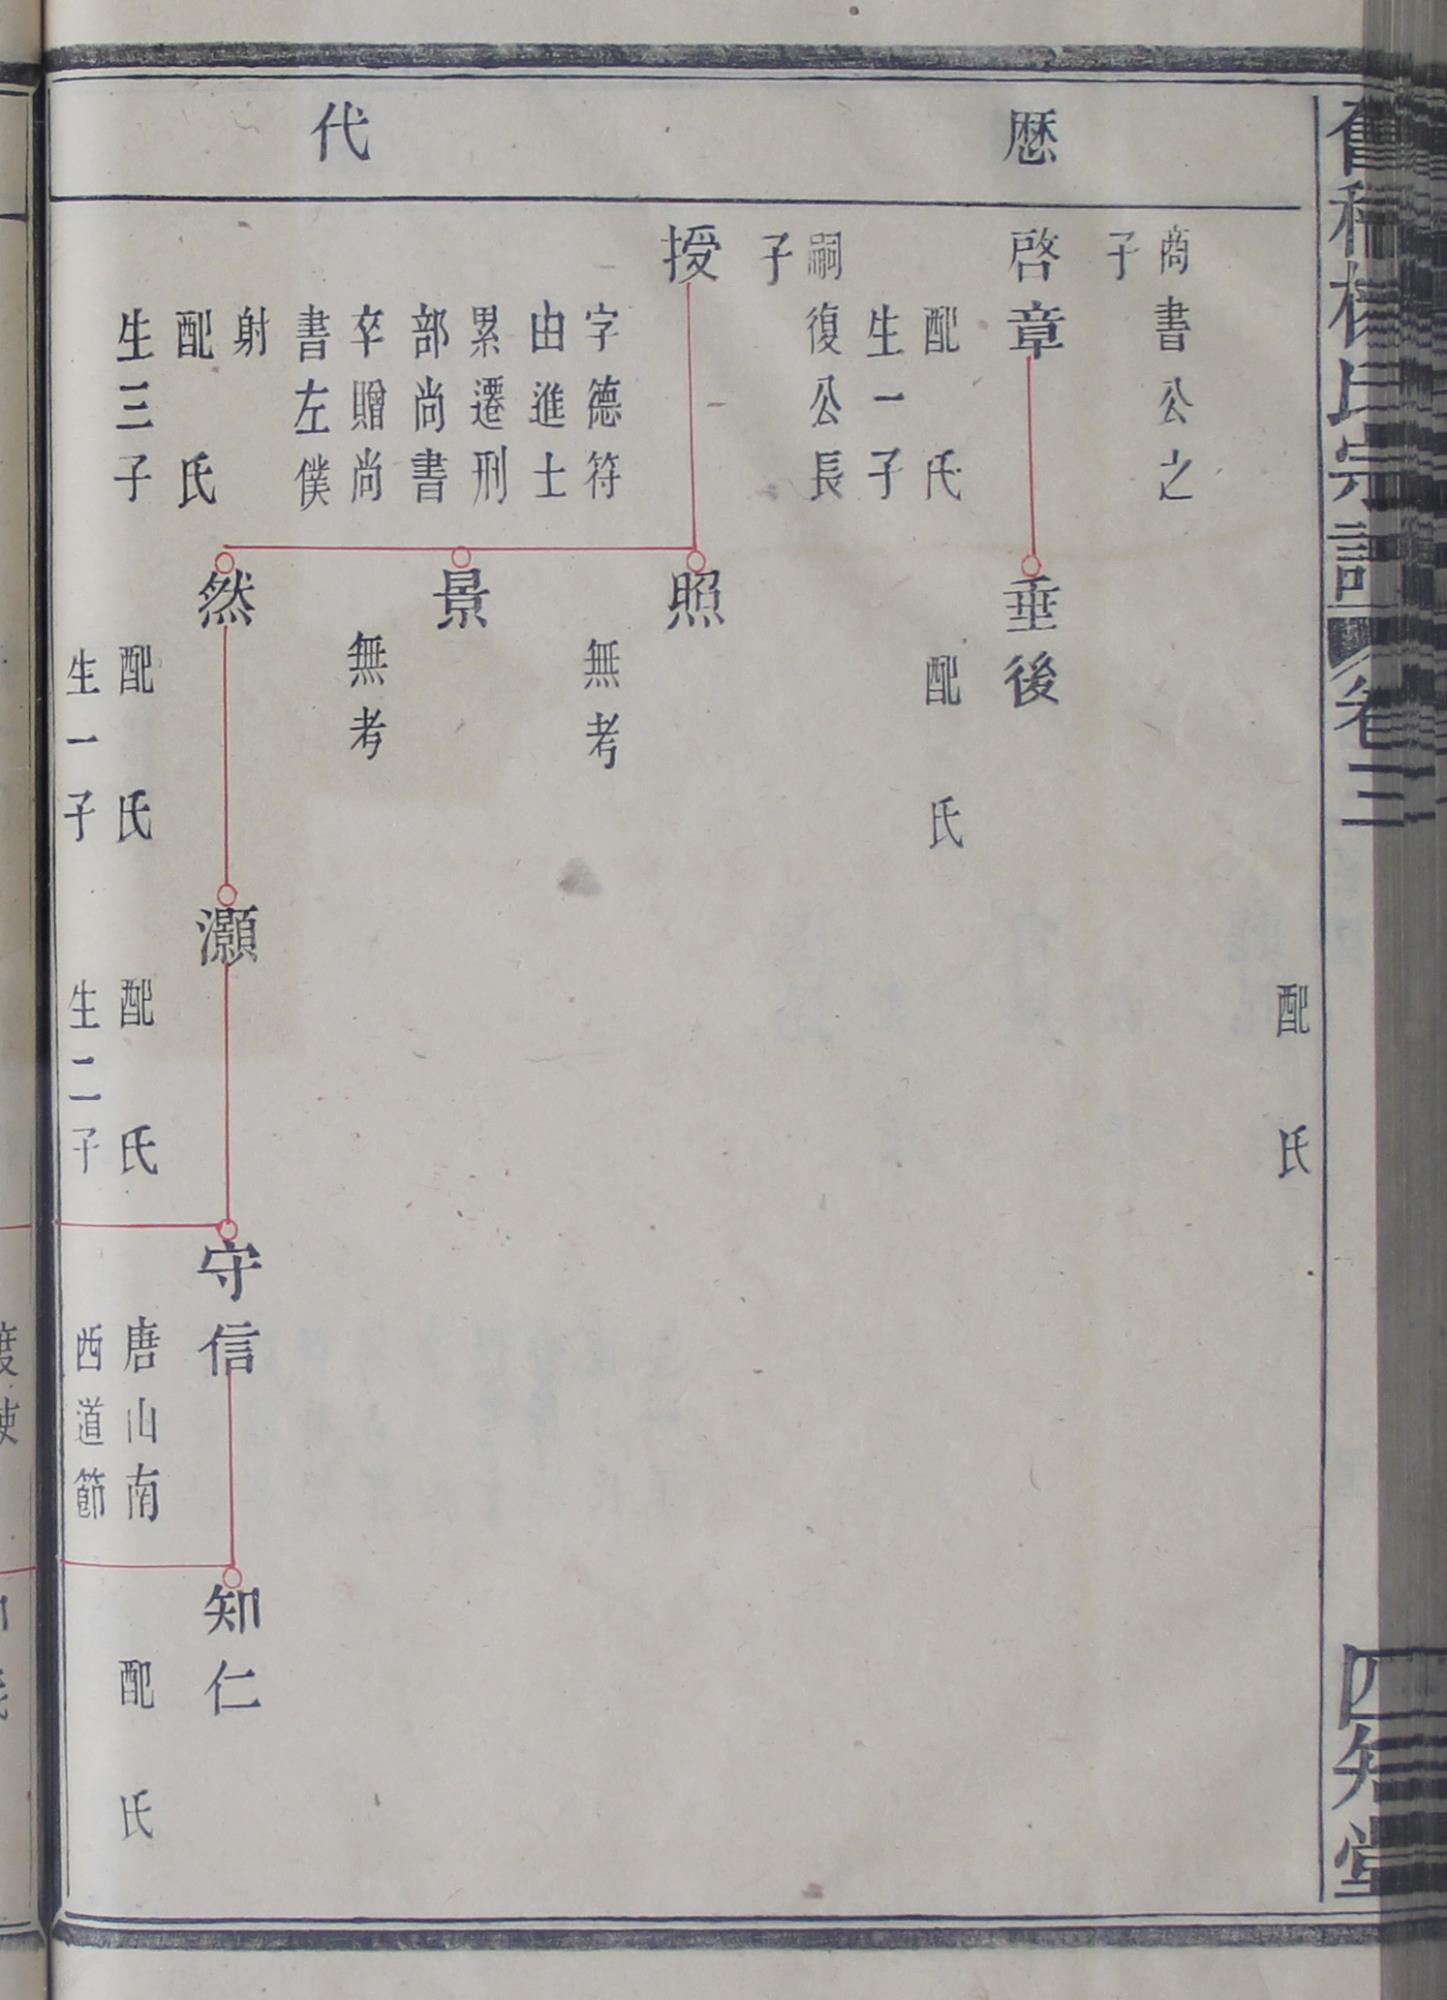 歴
代
配 氏
商書公之
子
啓章
配 氏
生一子
垂後
配 氏
嗣復公長
子
授
字德符
由進士
累遷刑
部尚書
卒贈尚
書左僕
射
配 氏
生三子
照
無考
景
無考
然
配 氏
生一子
灝
配 氏
生二子
守信
唐山南
西道節
知仁
配 氏
氏宗譜
卷三
四知堂